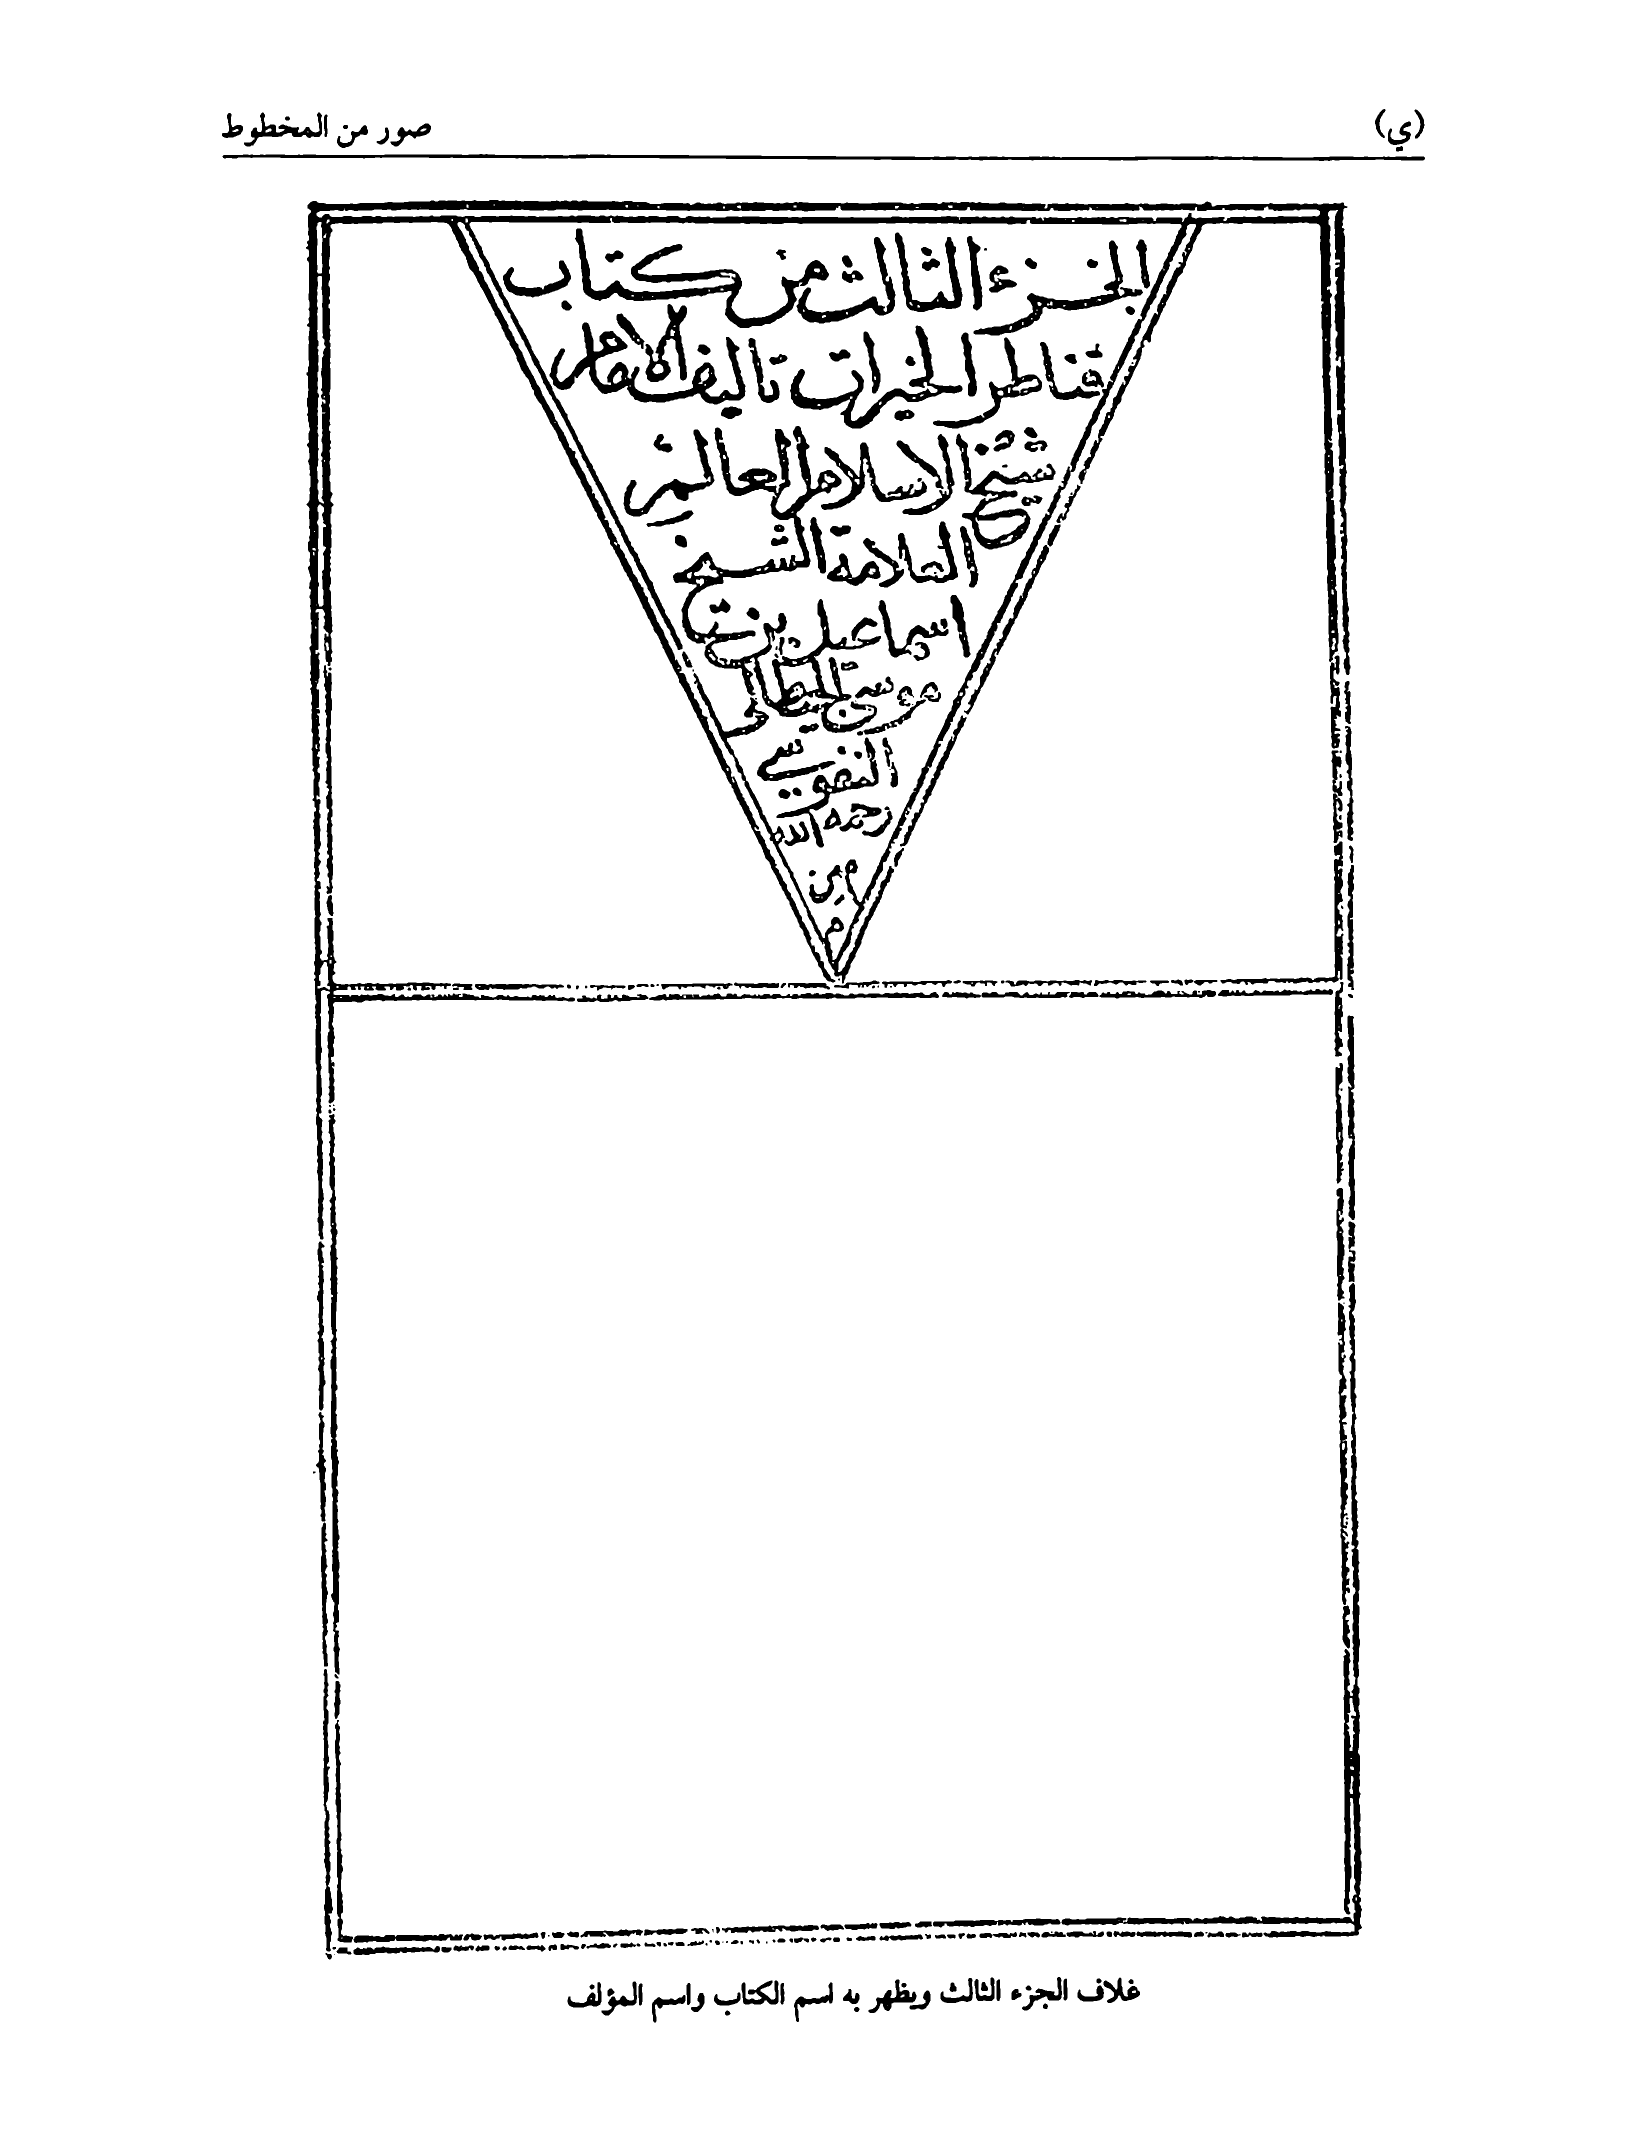 (ي)
صور من المخطوط
الجزء الثالث من كتاب
قناطر الخيرات تاليف الامام
شيخ الاسلام العالم
العلامة الشيخ
اسماعيل بن
موسى الجيطالي
النفوسي
رحمه الله
م
غلاف الجزء الثالث ويظهر به اسم الكتاب واسم المؤلف